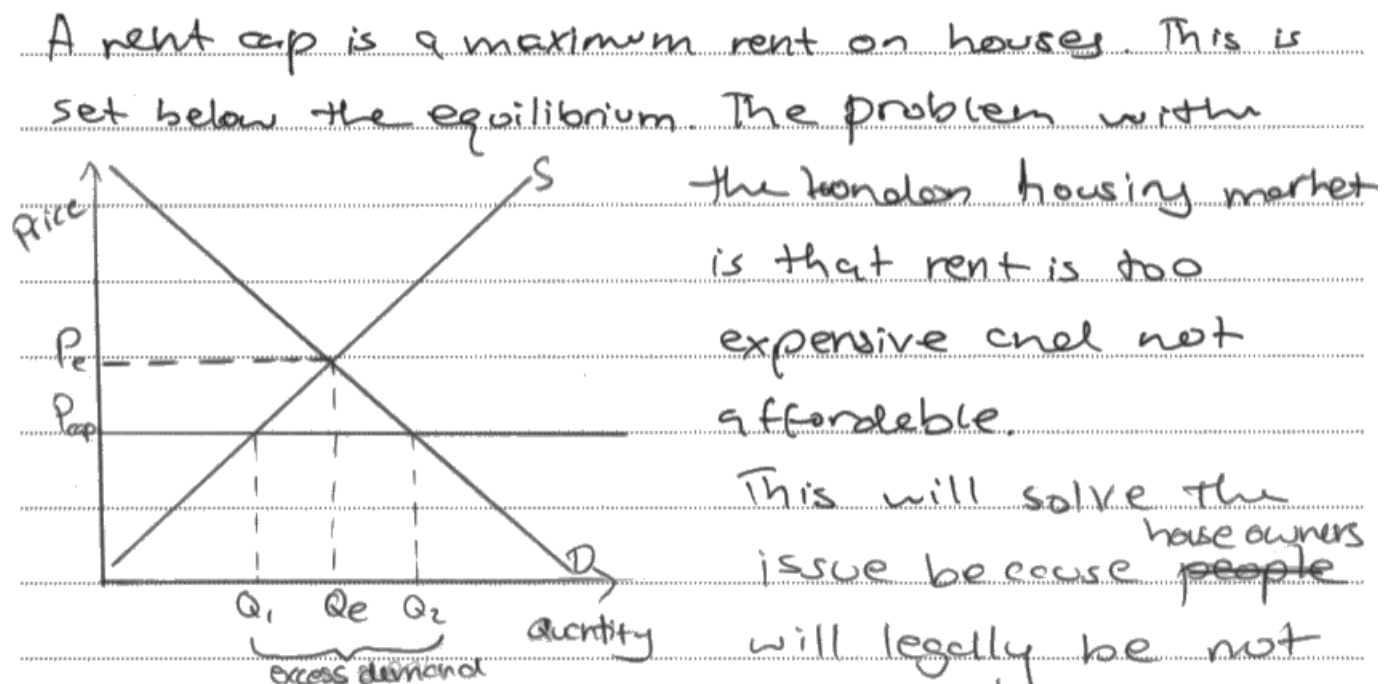 A rent cap is a maximum rent on houses. This is
set below the equilibrium. The problem with
the London housing market
is that rent is too
expensive and not
affordable.
This will solve the
house owners
issue because people
will legally be not
Price
S
Pe
Pcap
D
Q1 Qe Q2 Quantity
excess demand